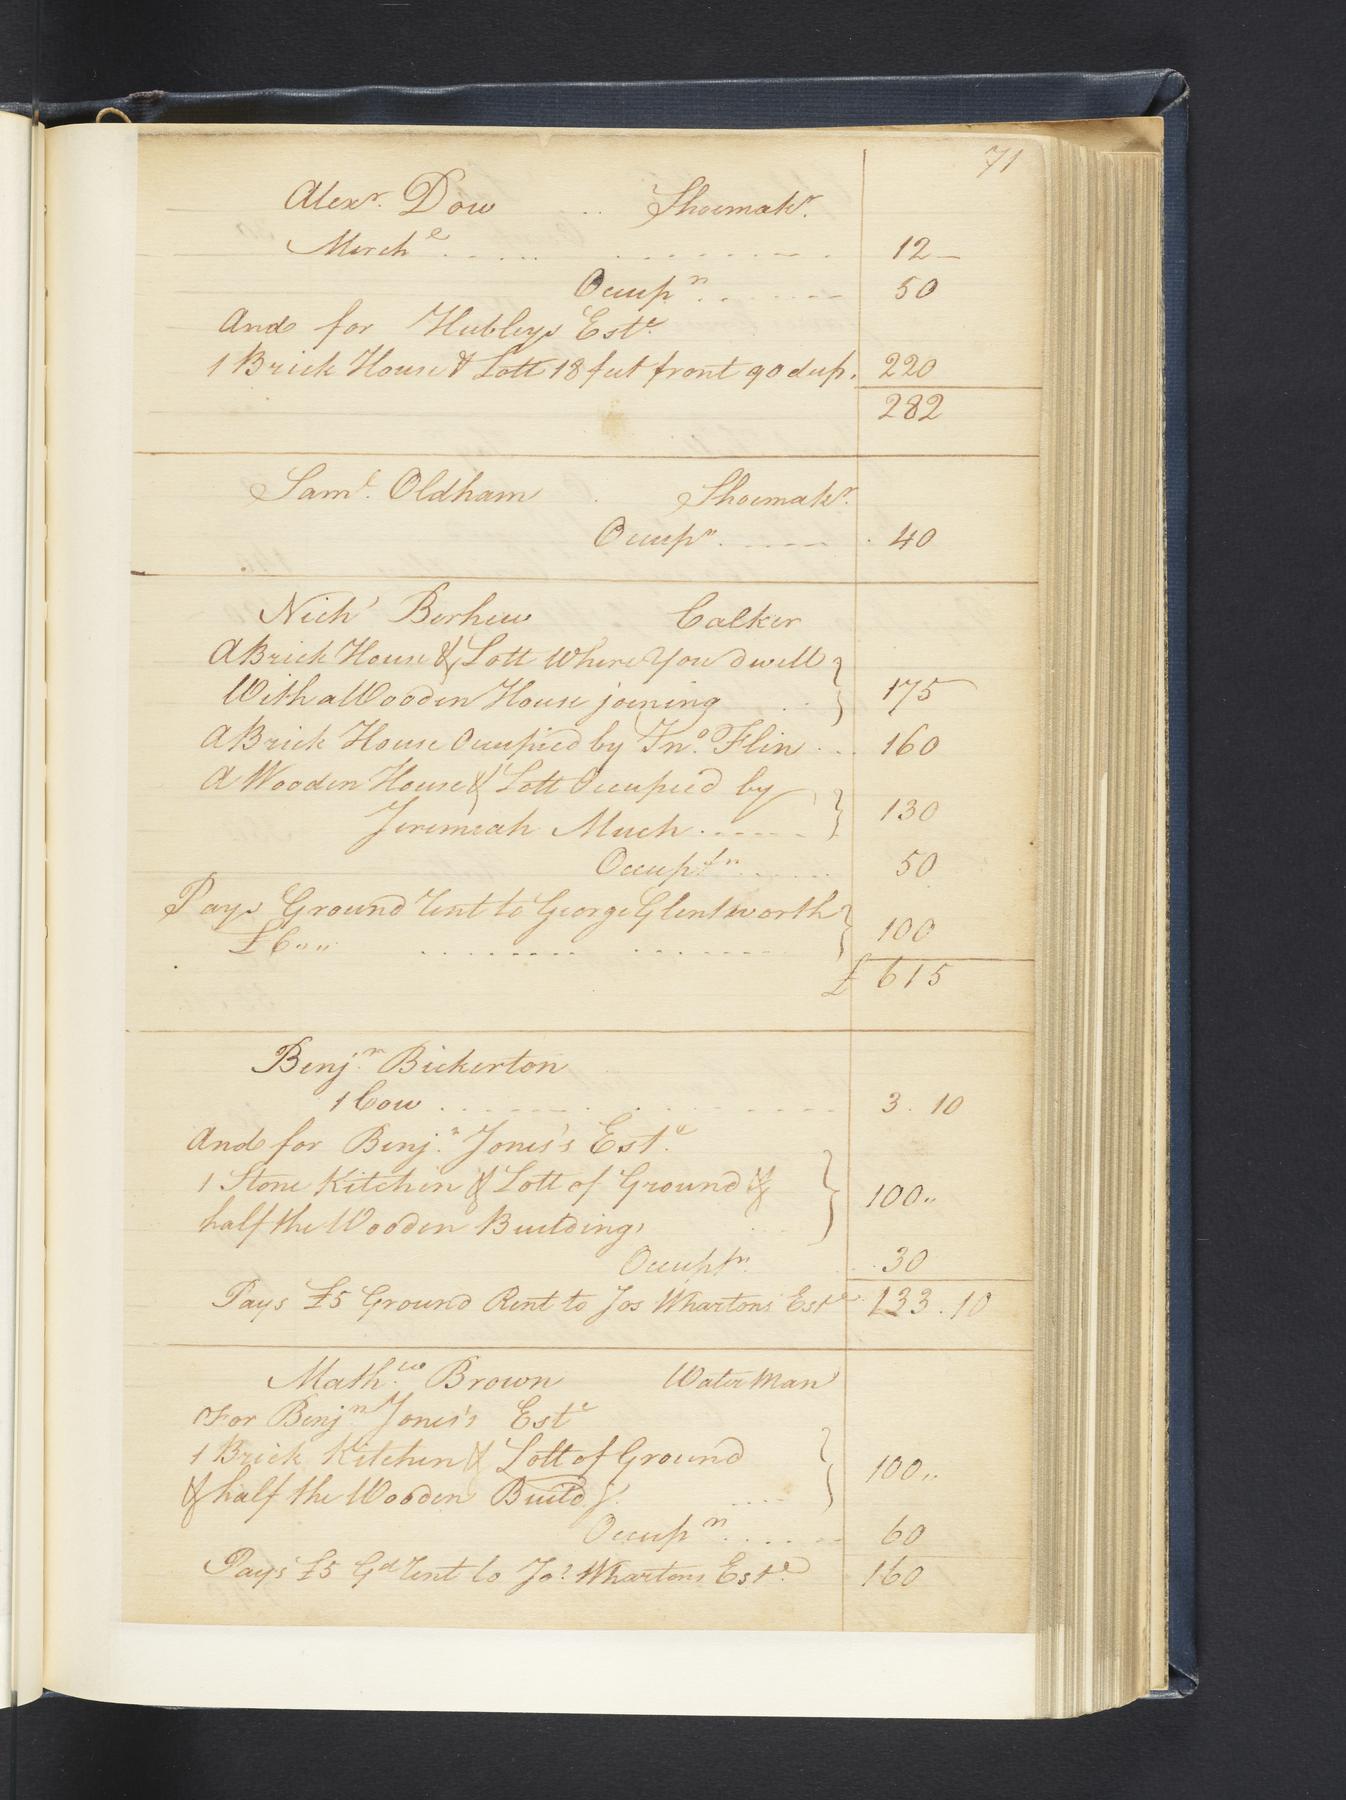 71
Alexr. Dow .. Shoemakr.
Merche ..... ......... 12_
Occupn ....... 50
And for Hubleys Este
1 Brick House & Lott 18 feet front 90 deep. 220
282
Saml. Oldham . Shoemakr.
Occupn. ..... 40
Nichs Berhew Calker
A Brick House & Lott Where You dwell
With a Wooden House joining .. 175
A Brick House Occupied by Jno. Flin ... 160
A Wooden House & Lott Occupied by
Jeremiah Much ...... 130
Occuptn ...... 50
Pays Ground Rent to George Glentworth
£6,,,, ........ ....... 100
£ 615
Benjn. Bickerton
1 Cow ............ 3.10
And for Benjn. Jones's Este.
1 Stone Kitchen & Lott of Ground &
half the Wooden Buildings ... 100,,
Occuptn. .. 30
Pays £5 Ground Rent to Jos Whartons Este 133.10
Mathw. Brown Water Man
For Benjn Jones's Este
1 Brick Kitchen & Lott of Ground
& half the Wooden Buildgs. .... 100,,
Occupn ...... 60
Pays £5 Gd Rent to Jos. Whartons Este. 160